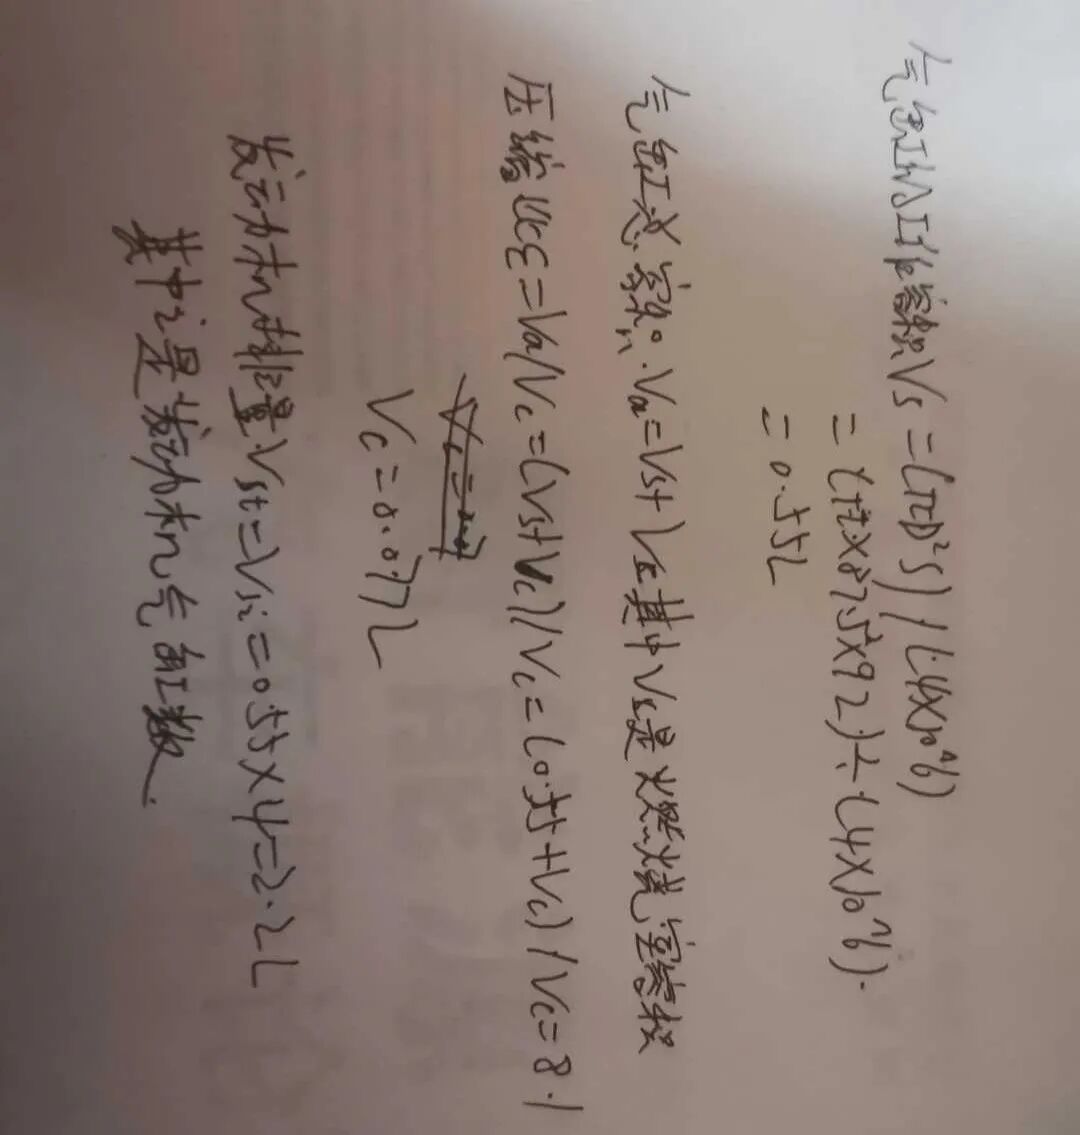 气缸的工作容积Vs=(πD²S)/(4×10^6)
=(π×87.5²×92)÷(4×10^6).
=0.55L
气缸总容积.Va=Vs+Vc其中Vc是燃烧室容积
压缩比ε=Va/Vc=(Vs+Vc)/Vc=(0.55+Vc)/Vc=8.1
Vc=0.077L
发动机排量.Vst=Vsi=0.55×4=2.2L
其中i是发动机气缸数.